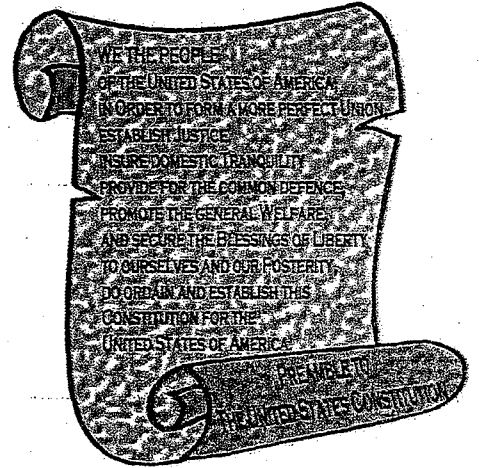 WE THE PEOPLE
OF THE UNITED STATES OF AMERICA
IN ORDER TO FORM A MORE PERFECT UNION
ESTABLISH JUSTICE
INSURE DOMESTIC TRANQUILITY
PROVIDE FOR THE COMMON DEFENCE
PROMOTE THE GENERAL WELFARE,
AND SECURE THE BLESSINGS OF LIBERTY
TO OURSELVES AND OUR POSTERITY
DO ORDAIN AND ESTABLISH THIS
CONSTITUTION FOR THE
UNITED STATES OF AMERICA
PREAMBLE TO
THE UNITED STATES CONSTITUTION